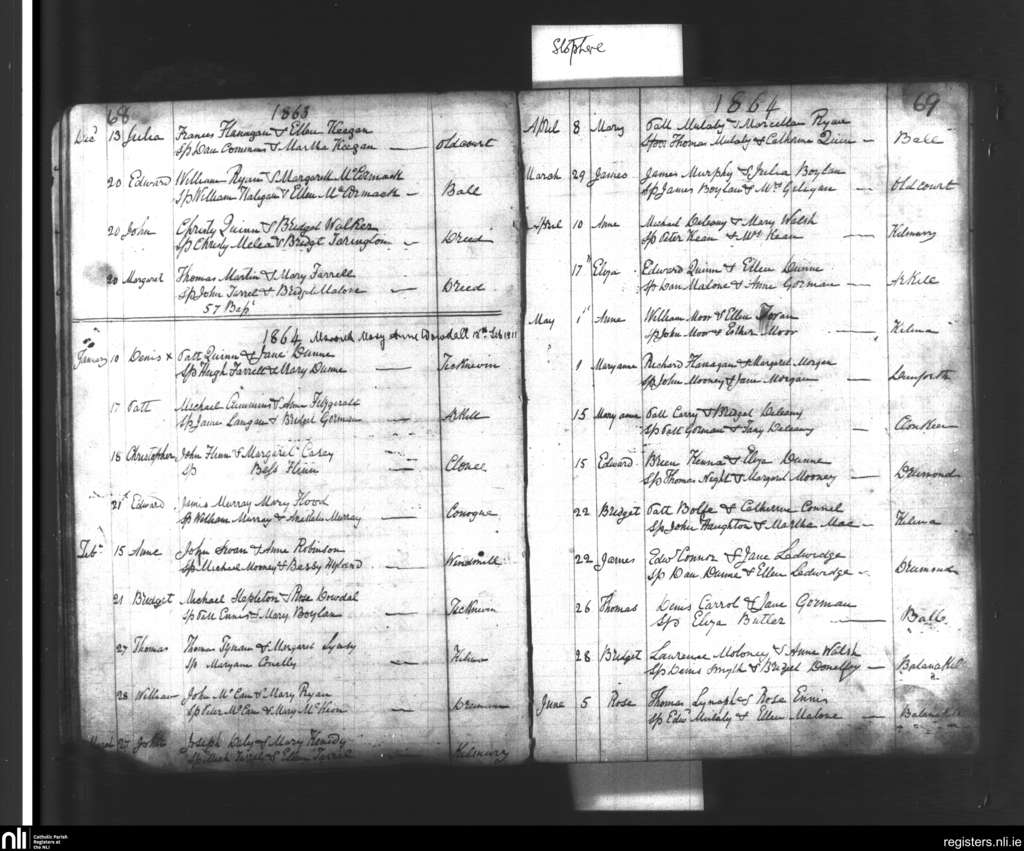 Slophere
68 1863
Decr 13 Julia Frances Flanagan & Ellen Keegan
Sp Dan Commins & Martha Keegan — Oldcourt
20 Edward William Ryan & Margarett McCormack
Sp William Haligan & Ellen McCormack — Ball
20 John Christy Quinn & Bridget Walker
Sp Christy Melea & Bridgt Tarington — Dreed
20 Margaret Thomas Martin & Mary Farrell
Sp John Farrel & Bridget Malone — Dreed
57 Bapt
1864 Married Mary Anne 18th Feb 1911
January 10 Denis x Patt Quinn & Jane Dunne
Sp Hugh Farrell & Mary Dunne — Ticknevin
17 Patt Michael Cummins & Anne Fitzgerald
Sp James Langan & Bridget Gorman — Arkill
18 Christopher John Flinn & Margaret Casey
Sp Bess Flinn — Clonee
21st Edward James Murray Mary Flood
Sp William Murray & Murray — Conogue
Feby 15 Anne John Swan & Anne Robinson
Sp Michael Mooney & Bessy Hyland — Windmill
21 Bridget Michael Stapleton & Rose Dowdal
Sp Patt Ennis & Mary Boylan — Ticknevin
27 Thomas Thomas Tyman & Margaret Lynsy
Sp Maryann Conelly — Kilina
28 William John McCan & Mary Ryan
Sp Peter McCan & Mary McKeon — Drummon
March 27 John Joseph Daly & Mary Kenedy
Sp & Ellen Farrel — Kilmurry
1864 69
April 8 Mary Patt Mulaly & Marcella Ryan
Spor Thomas Mulaly & Catherine Quin — Ball
March 29 James James Murphy & Julia Boylan
Sp James Boylan & Mrs Galigan — Oldcourt
April 10 Anne Michael Delaony & Mary Walsh
Sp Peter Kean & Mrs Kean — Kilmurry
17th Eliza Edward Quinn & Ellen Dunne
Sp Dan Malone & Anne Gorman — Arkill
May 1st Anne William Moor & Ellen Foran
Sp John Moor & Esther Moor — Kilina
1 Maryanne Richard Flanagan & Margaret Morgan
Sp John Mooney & Jane Morgan — Danforth
15 Maryanne Patt Carry & Bridget Deleany
Sp Patt Gorman & Deleany — Clonkeen
15 Edward Breen Kenna & Eliza Dunne
Sp Thomas Neght & Margaret Mooney — Drumond
22 Bridget Patt Bolfe & Catherine Connel
Sp John Haughton & Martha Mac — Kilina
22 James Edwd Connor & Jane Ladwidge
Sp Dan Dunne & Ellen Ledwidge — Drumond
26 Thomas Denis Carrol & Jane Gorman
Sp Eliza Butler — Ball
28 Bridget Laurence Moloney & Anne Walsh
Sp Denis Smyth & Bridget Donelfoy — Balanakill
June 5 Rose Thomas Lynaph & Rose Ennis
Sp Edwd Mulaly & Ellen Malone — Balinakill
nli Catholic Parish Registers at the NLI
registers.nli.ie